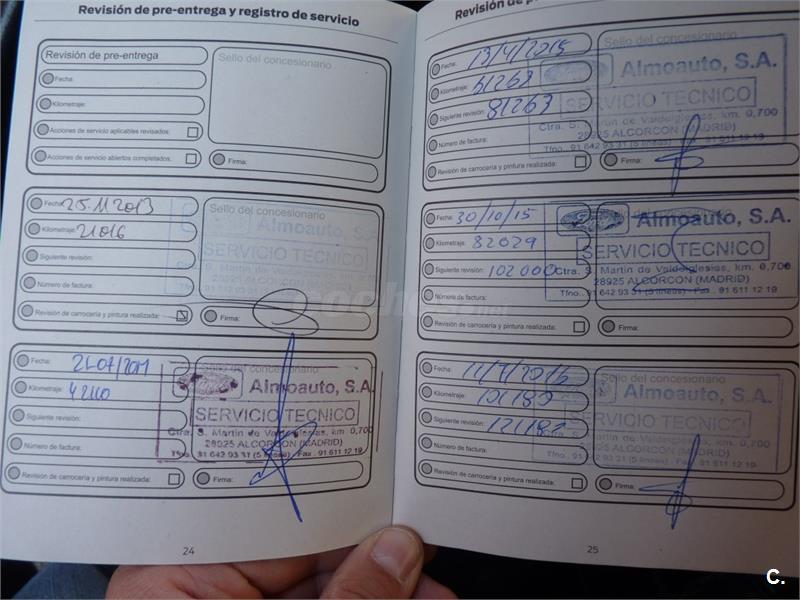 Revisión de pre-entrega y registro de servicio
Revisión de pre-entrega
Fecha:
Kilometraje:
Acciones de servicio aplicables revisados:
Acciones de servicio abiertos completados:
Sello del concesionario
Firma:
Fecha: 25.11.2013
Kilometraje: 21016
Siguiente revisión:
Número de factura:
Revisión de carrocería y pintura realizada:
Sello del concesionario
SERVICIO TECNICO
Firma:
Fecha:
Kilometraje:
Siguiente revisión:
Número de factura:
Revisión de carrocería y pintura realizada:
Sello del concesionario
Almoauto, S.A.
SERVICIO TECNICO
Ctra. S. Martin de Valdeiglesias, km. 0,700
28925 ALCORCON (MADRID)
Tfno. 91 642 93 31 (5 lineas) - Fax. 91 611 12 19
Firma:
24
Revisión de
Fecha: 13/4/2015
Kilometraje: 61263
Siguiente revisión: 81263
Número de factura:
Revisión de carrocería y pintura realizada:
Sello del concesionario
Almoauto, S.A.
SERVICIO TECNICO
Ctra. S. Martin de Valdeiglesias, km. 0,700
28925 ALCORCON (MADRID)
Tfno. 91 642 93 31 (5 lineas) - Fax. 91 611 12 19
Firma:
Fecha: 30/10/15
Kilometraje: 82029
Siguiente revisión: 102000
Número de factura:
Revisión de carrocería y pintura realizada:
Almoauto, S.A.
SERVICIO TECNICO
Ctra. S. Martin de Valdeiglesias, km. 0,700
28925 ALCORCON (MADRID)
Tfno. 91 642 93 31 (5 lineas) - Fax. 91 611 12 19
Firma:
Fecha: 11/7/2016
Kilometraje: 101182
Siguiente revisión: 121182
Número de factura:
Revisión de carrocería y pintura realizada:
Sello del concesionario
Almoauto, S.A.
SERVICIO TECNICO
Ctra. S. Martin de Valdeiglesias, km. 0,700
28925 ALCORCON (MADRID)
Tfno. 91 642 93 31 (5 lineas) - Fax. 91 611 12 19
Firma:
25
C.